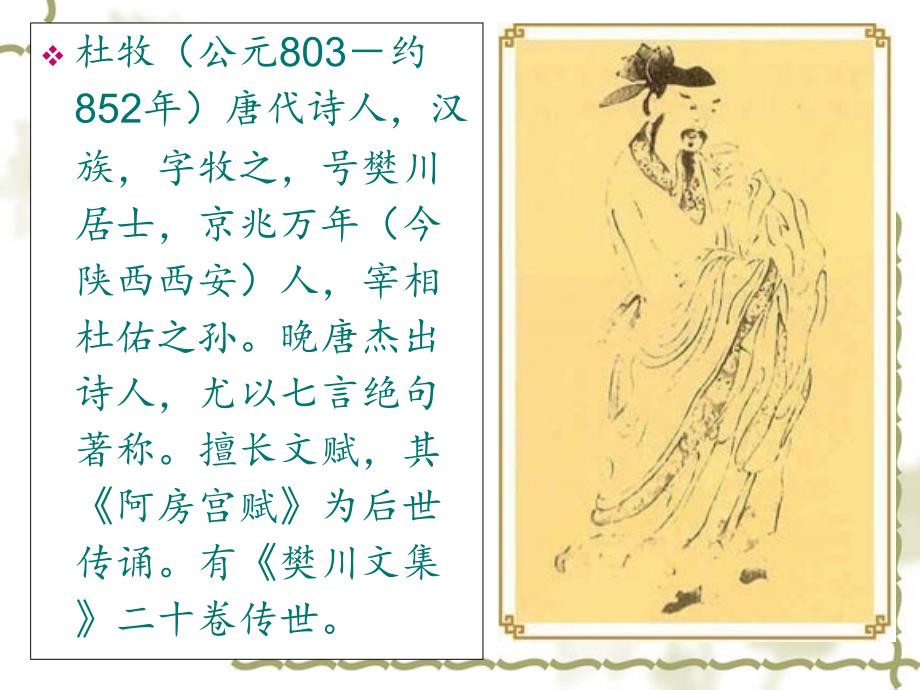 杜牧（公元803－约
852年）唐代诗人，汉
族，字牧之，号樊川
居士，京兆万年（今
陕西西安）人，宰相
杜佑之孙。晚唐杰出
诗人，尤以七言绝句
著称。擅长文赋，其
《阿房宫赋》为后世
传诵。有《樊川文集
》二十卷传世。